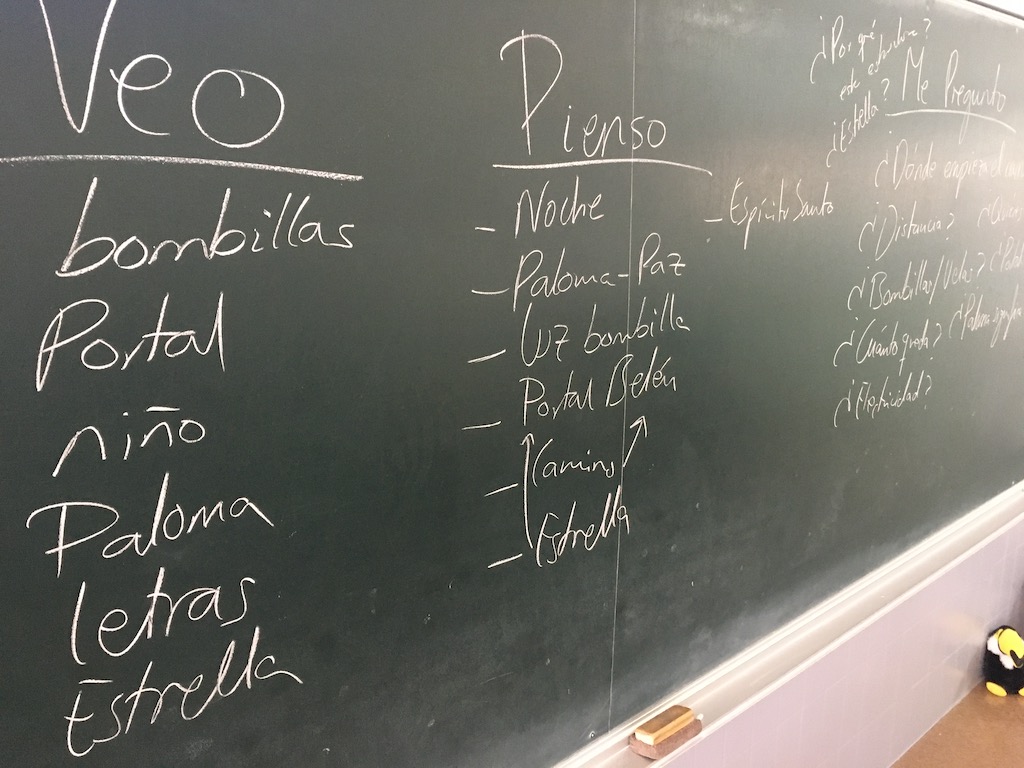 Veo
bombillas
Portal
niño
Paloma
letras
Estrella
Pienso
- Noche
- Paloma - Paz
- Luz bombilla
- Portal Belén
- Camino
- Estrella
- Espíritu Santo
¿Por qué
este
¿Estrella?
Me Pregunto
¿Dónde
¿Distancia?
¿Bombillas/Velas?
¿Cuánto
¿Electricidad?